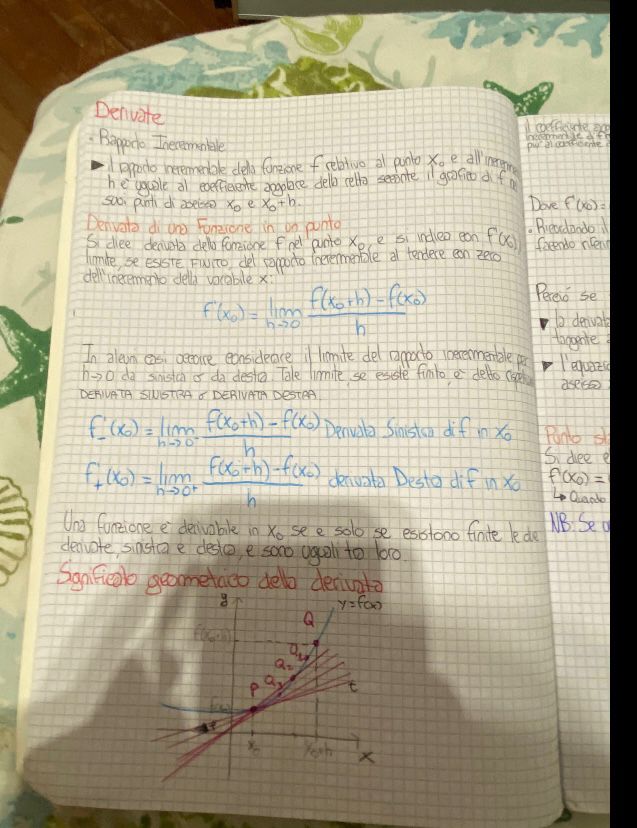 Derivate
• Rapporto Incrementale
▶ Il rapporto incrementale della funzione f relativo al punto x₀ e all'increme
h è uguale al coefficiente angolare della retta secante il grafico di f ne
suoi punti di ascissa x₀ e x₀+h.
Derivata di una Funzione in un punto
Si dice derivata della funzione f nel punto x₀, e si indica con f'(x₀),
limite, se ESISTE FINITO, del rapporto incrementale al tendere con zero
dell'incremento della variabile x:
f'(x₀) = lim h→0 f(x₀+h) - f(x₀) / h
In alcuni casi occorre considerare il limite del rapporto incrementale per
h→0 da sinistra o da destra. Tale limite, se esiste finito, è detto
DERIVATA SINISTRA o DERIVATA DESTRA.
f'₋(x₀) = lim h→0⁻ f(x₀+h) - f(x₀) / h Derivata Sinistra di f in x₀
f'₊(x₀) = lim h→0⁺ f(x₀+h) - f(x₀) / h derivata Desta di f in x₀
Una funzione è derivabile in x₀ se e solo se esistono finite le de
derivate, sinistra e destra, e sono uguali tra loro.
Significato geometrico della derivata
y
Q
y=f(x)
f(x₀+h)
Q₁
Q₂
Q₃
P
t
f(x₀)
x₀
x₀+h
x
il coefficiente ango
incrementale di f
Dove f'(x₀) =
• Ricordando il
facendo riferim
Perciò se
▶ la derivata
tangente
▶ l'equazi
ascissa
Punto sta
Si dice
f'(x₀) =
↳ Quando
NB: Se